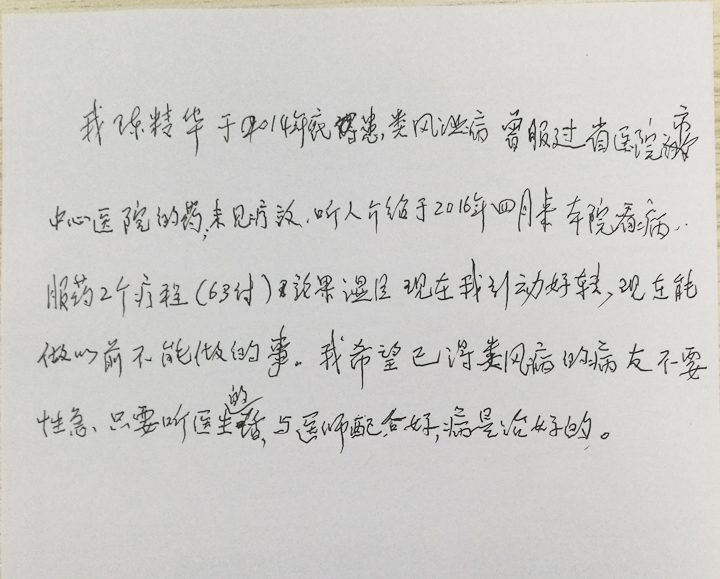 我陈精华于2014年底患类风湿病曾服过省医院 市
中心医院的药,未见疗效.听人介绍于2016年四月来本院看病.
服药2个疗程(63付)效果 现在我行动好转,现在能
做以前不能做的事。我希望已得类风病的病友不要
性急、只要听医生的话,与医师配合好,病是治好的。